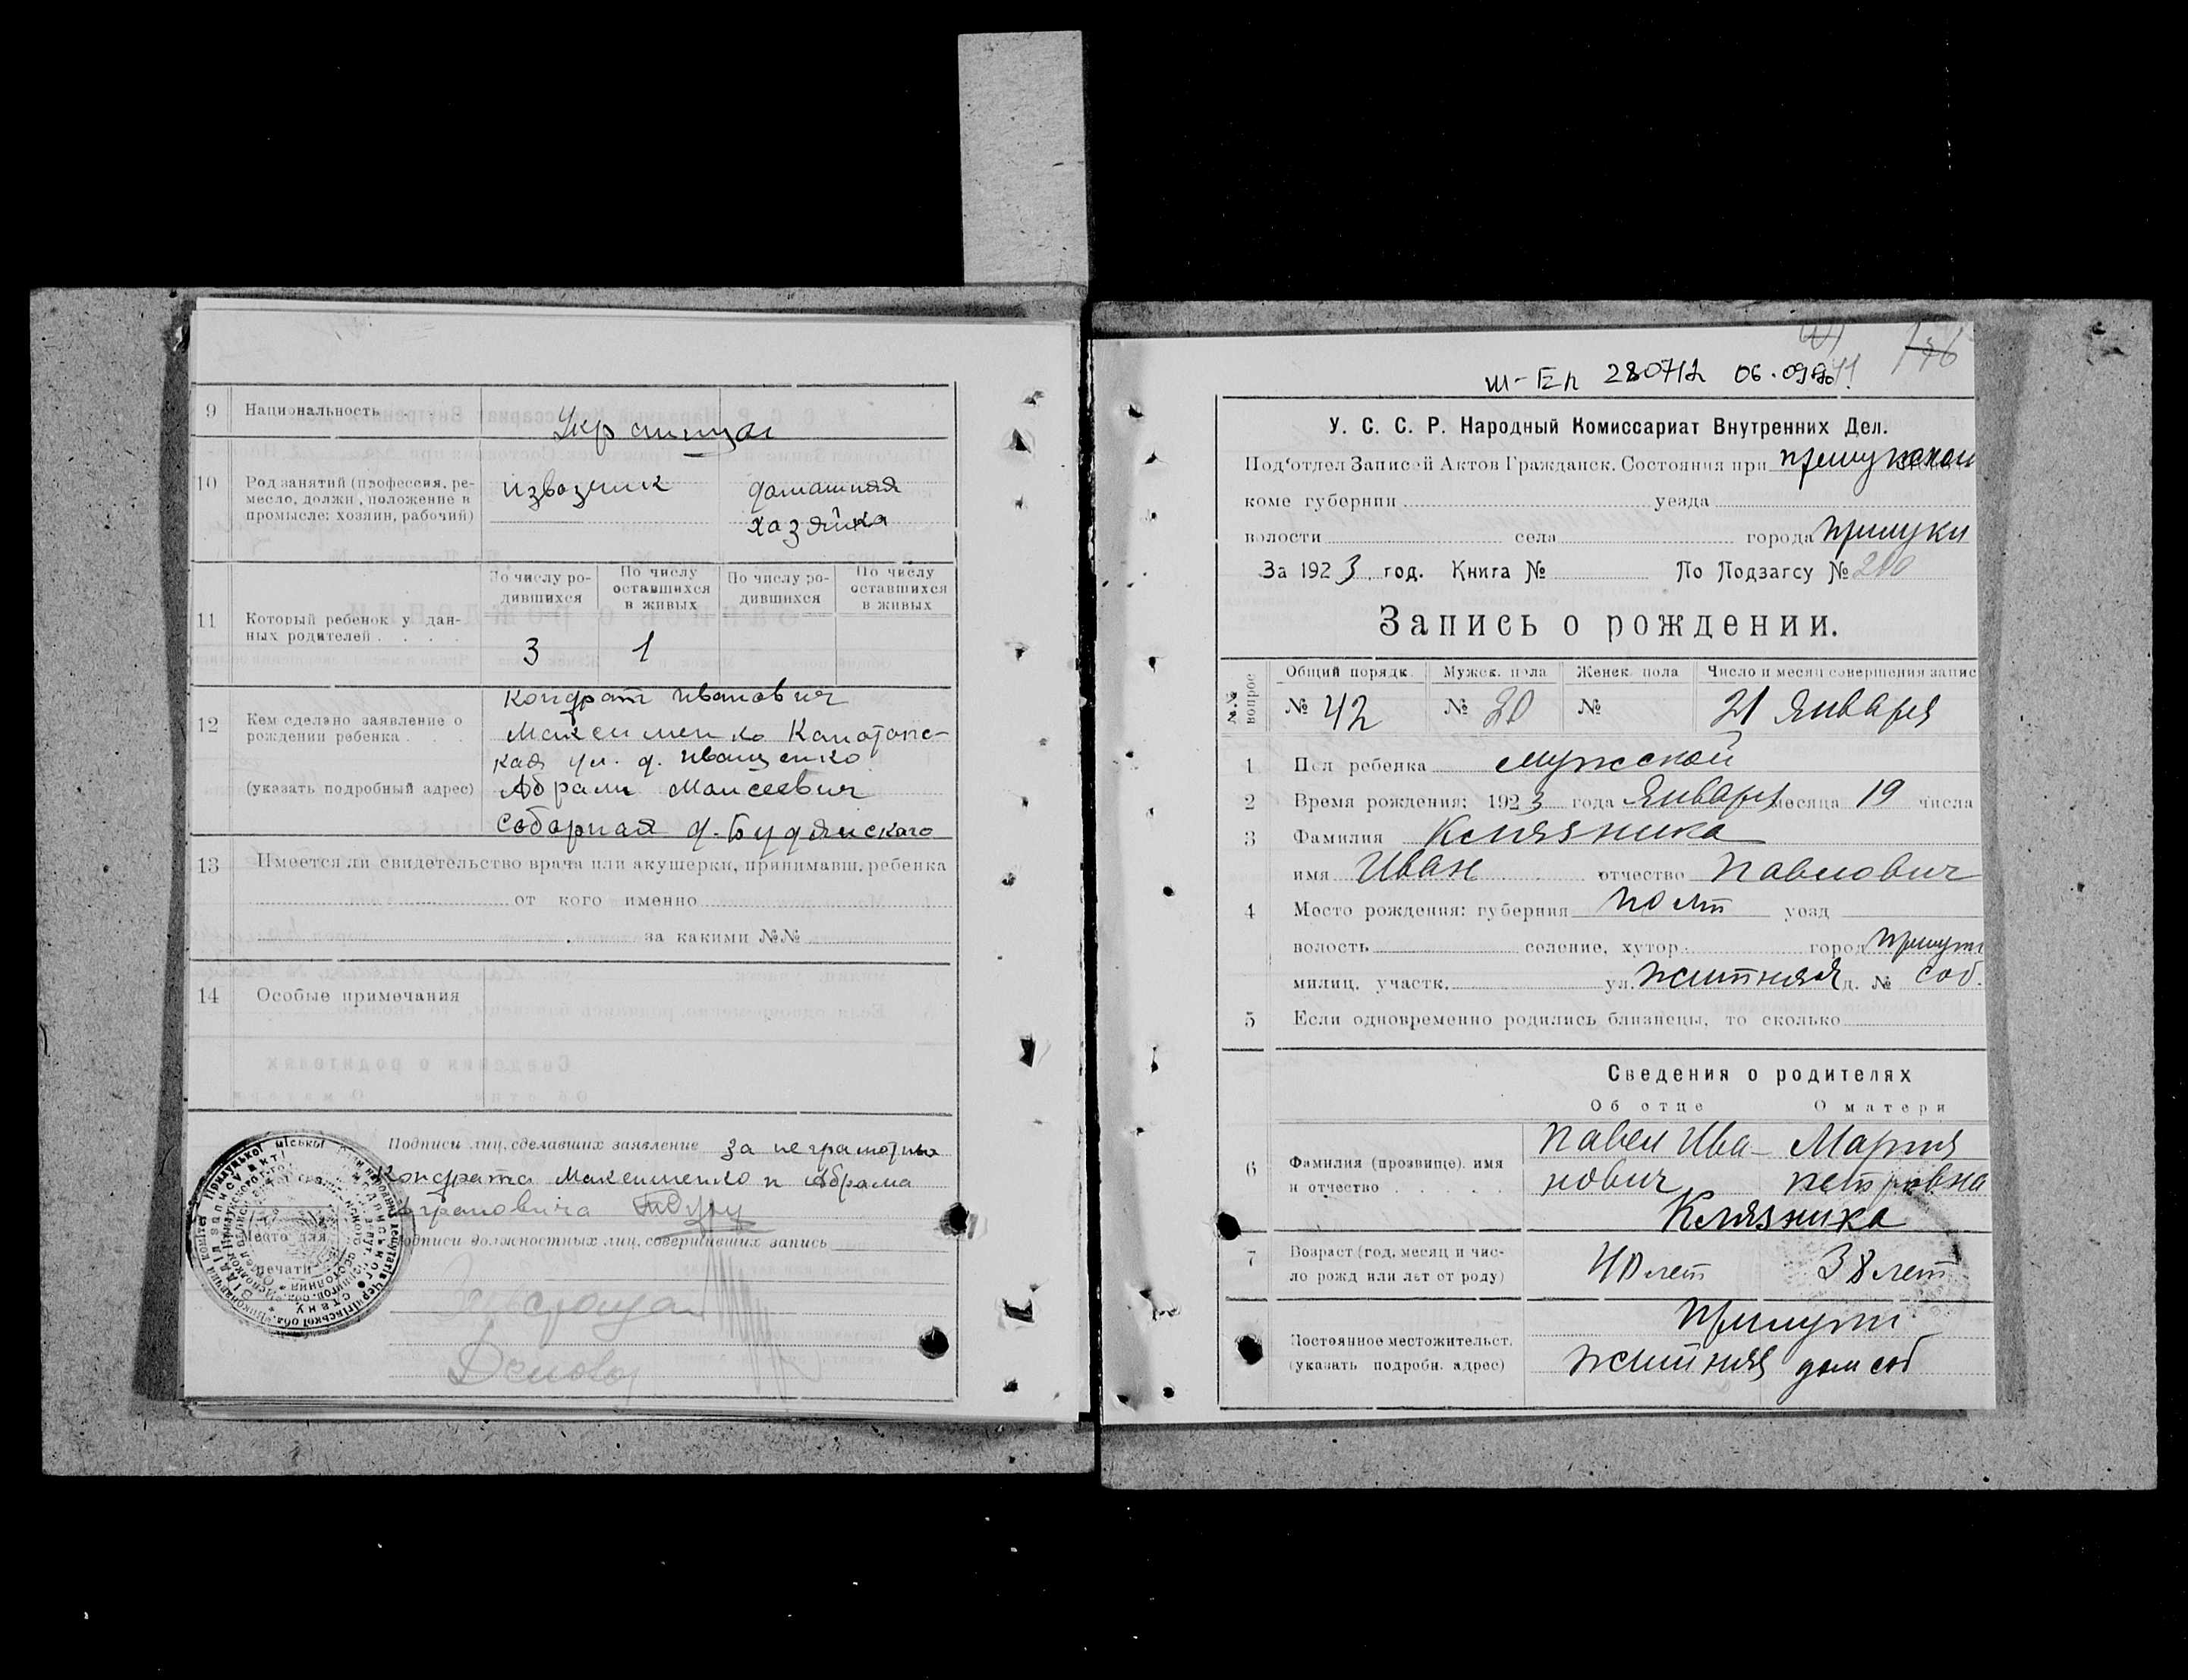 9 Национальность Украинцы
10 Род занятий (профессия, ре-
месло, должн., положение в
промысле: хозяин, рабочий)
извозчик домашняя
хазяйка
11 Который ребенок у дан-
ных родителей . . . .
По числу ро-
дившихся
По числу
оставшихся
в живых
По числу ро-
дившихся
По числу
оставшихся
в живых
3 1
12 Кем сделано заявление о
рождении ребенка . . .
(указать подробный адрес)
Кондрат Иванович
Максименко Канотопс-
кая ул. д. Иващенко
Абрам Моисеевич
Соборная д. Будянскаго
13 Имеется ли свидетельство врача или акушерки, принимавш. ребенка
от кого именно
за какими №№
14 Особые примечания
Подписи лиц, сделавших заявление за неграмотных
Кондрата Максименко и Абрама
Подписи должностных лиц, совершивших запись
Место для
печати
280712 06.09
У. С. С. Р. Народный Комиссариат Внутренних Дел.
Под'отдел Записей Актов Гражданск. Состояния при
коме губернии уезда
волости села города Прилуки
За 1923 год. Книга № По Подзагсу № 200
Запись о рождении.
№№ вопрос
Общий порядк. Мужск. пола Женск. пола Число и месяц совершения запис
№ 42 № 20 № 21 Января
1 Пол ребенка мужской
2 Время рождения: 1923 года Января месяца 19 числа
3 Фамилия Клязника
имя Иван отчество Павлович
4 Место рождения: губерния Полт уезд
волость селение, хутор город Прилуки
милиц. участк. ул. Житняя д. № соб.
5 Если одновременно родились близнецы, то сколько
Сведения о родителях
Об отце О матери
6 Фамилия (прозвище), имя
и отчество . . . . .
Павел Ива- Мария
нович Петровна
Клязника
7 Возраст (год, месяц и чис-
ло рожд или лет от роду)
40 лет 38 лет
Постоянное местожительст.
(указать подробн. адрес)
Прилуки
Житняя дом соб